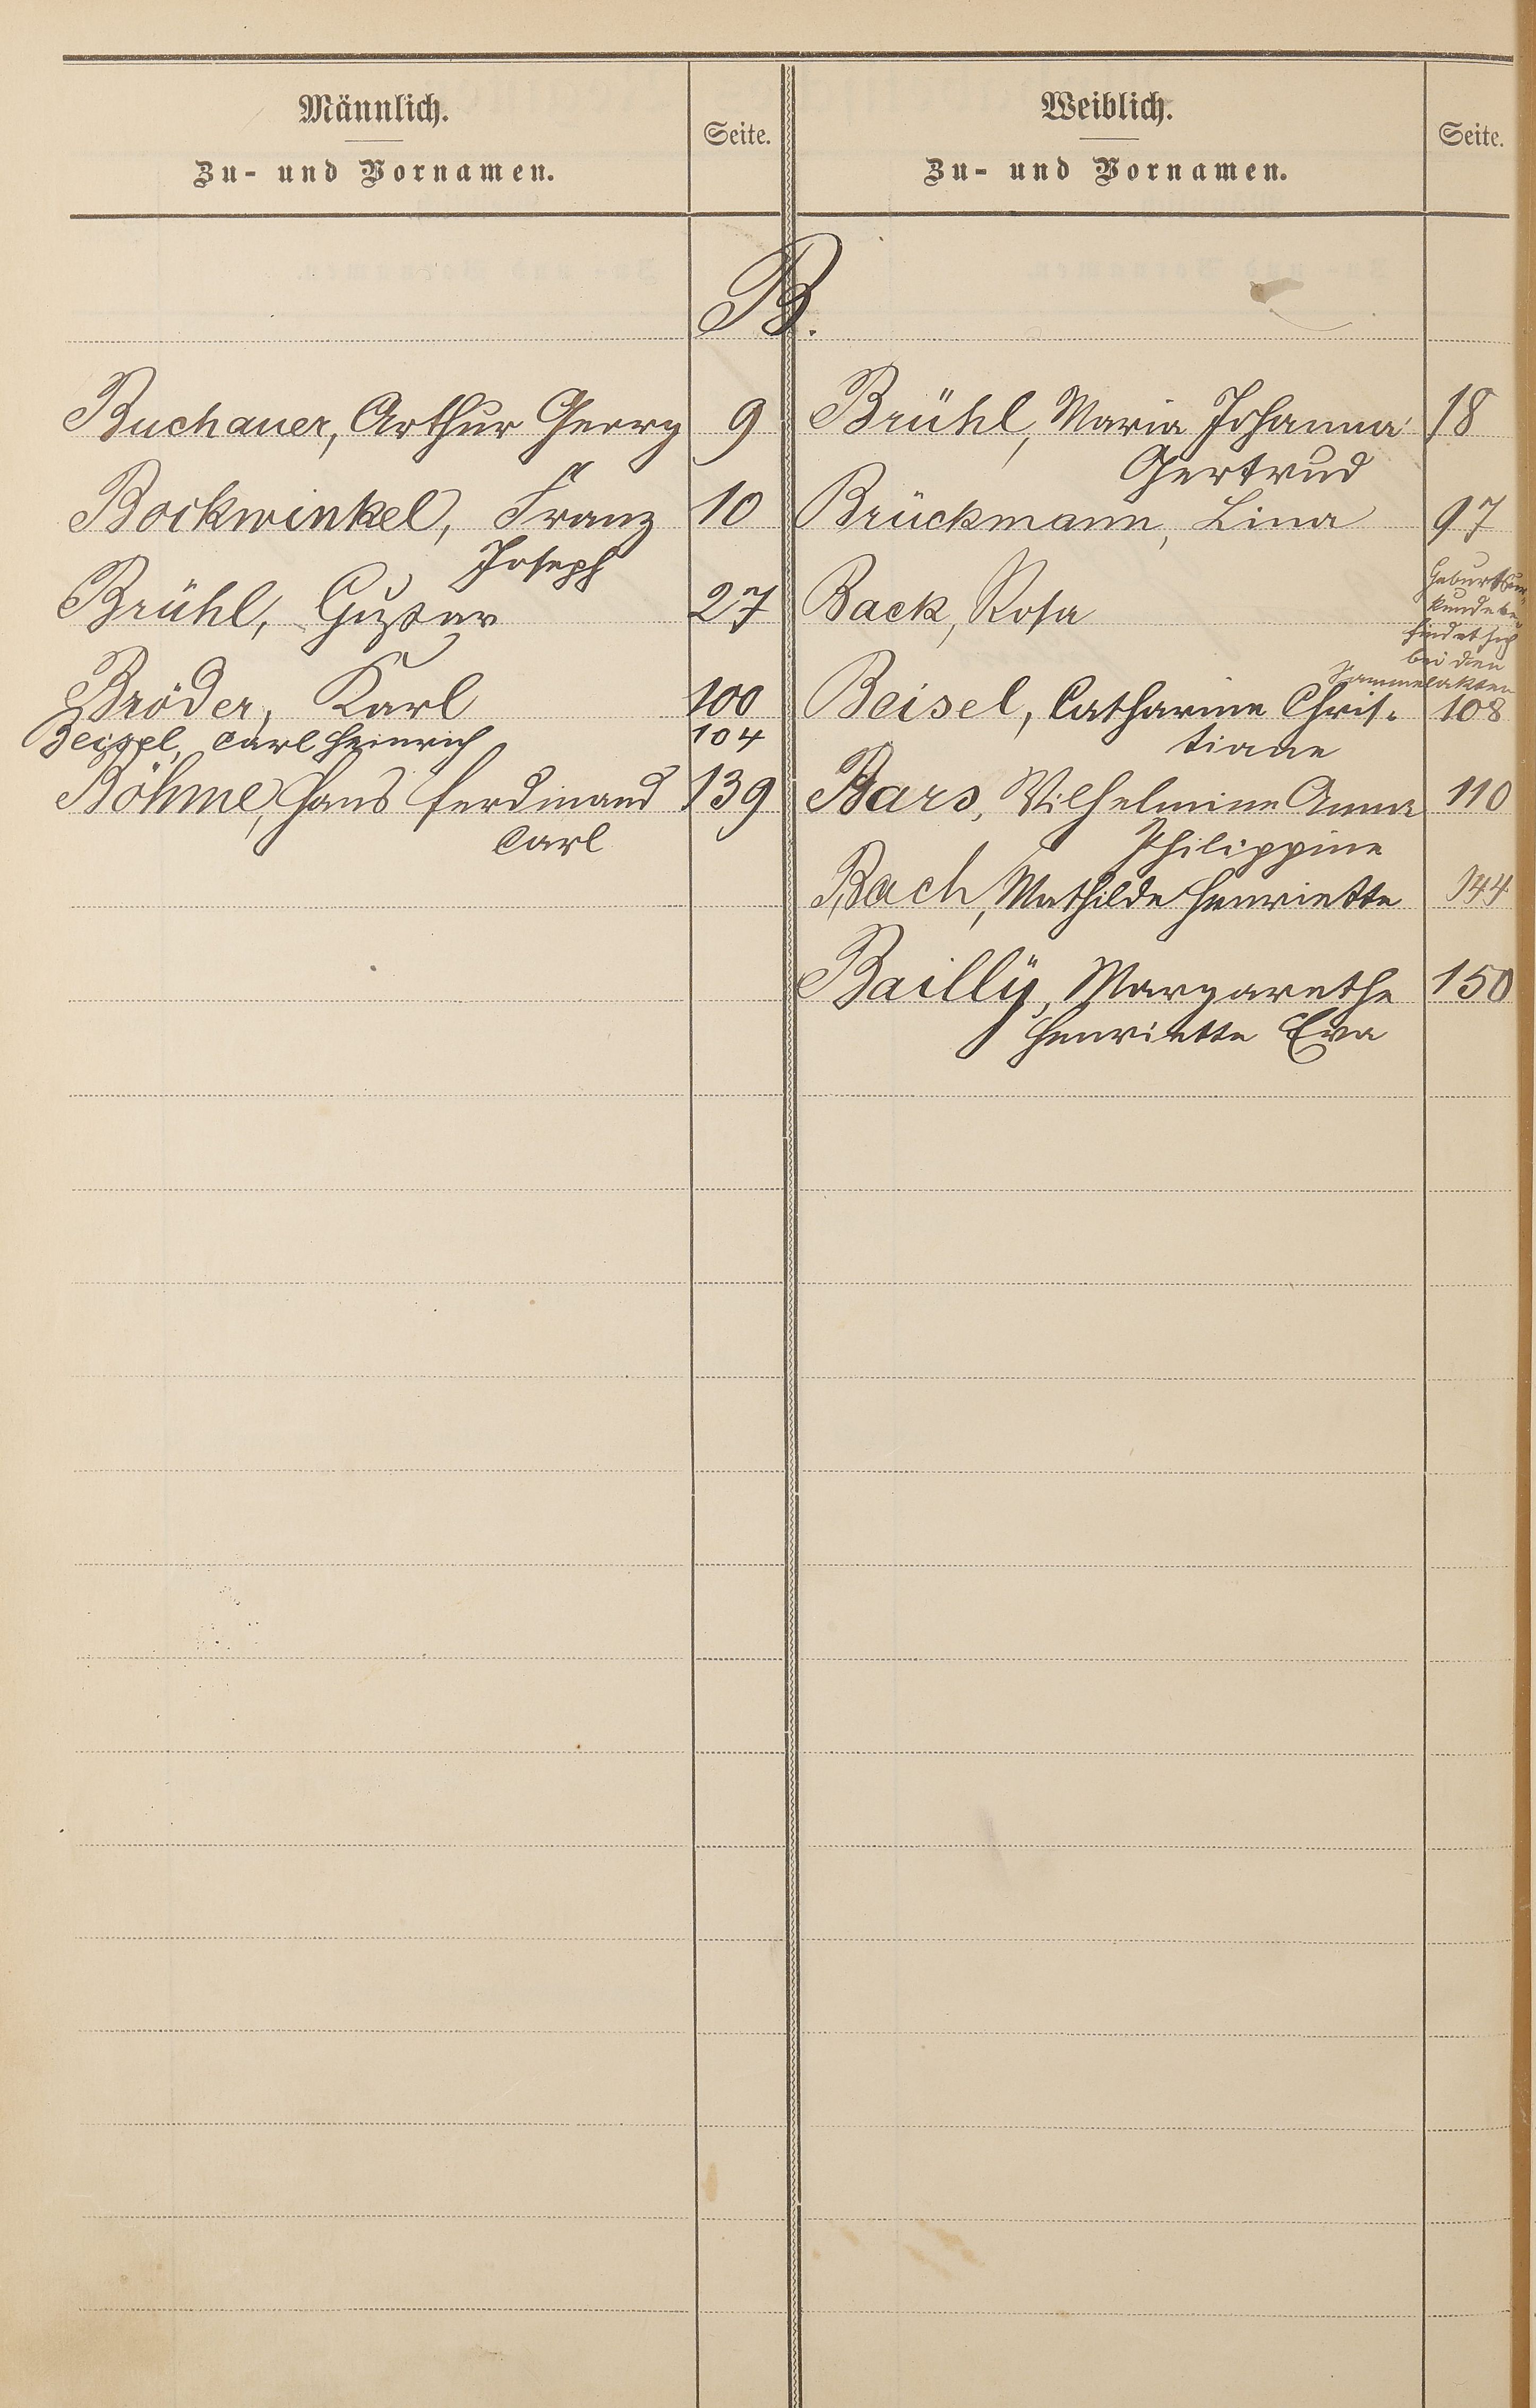 Männlich.
Zu- und Vornamen.
Seite.
Weiblich.
Zu- und Vornamen.
Seite.
B.
Buchauer, Arthur Georg 9
Bockwinkel, Franz 10
Joseph
Brühl, Gustav 27
Bröder, Karl 100
Beissel, Carl Heinrich 104
Böhme, Hans Ferdinand 139
Carl
Brühl, Maria Johanna 18
Gertrud
Brückmann, Lina 97
Back, Rosa
Geburtsur-
kunde be-
findet sich
bei den
Sammelakten
Beisel, Catharina Chris-
108
tiane
Bars, Wilhelmine Anna 110
Philippine
Bach, Mathilde Henriette 144
Bailly, Margarethe 150
Henriette Eva